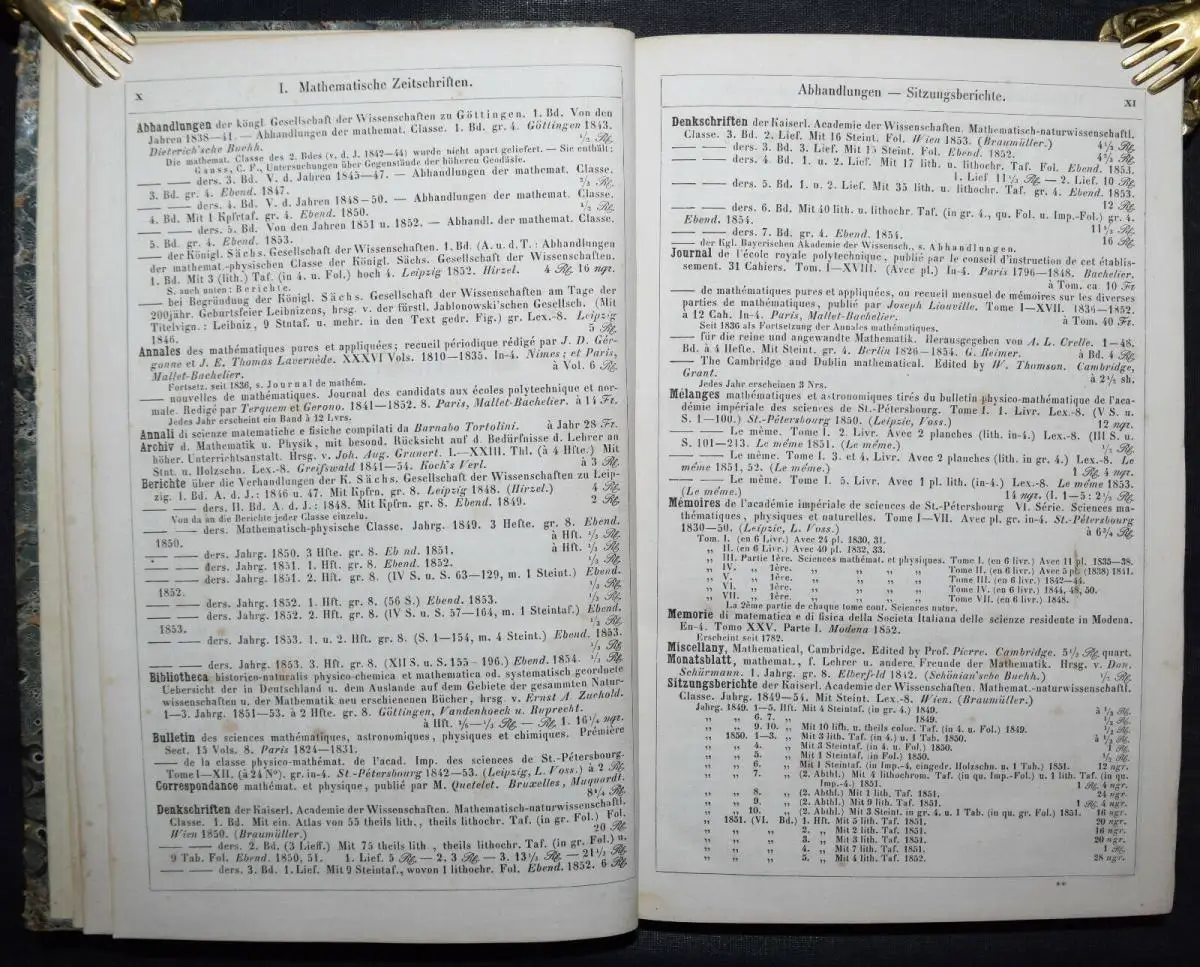 X
I. Mathematische Zeitschriften.
Abhandlungen der königl Gesellschaft der Wissenschaften zu Göttingen. 1. Bd. Von den
Jahren 1838—41. — Abhandlungen der mathemat. Classe. 1. Bd. gr. 4. Göttingen 1843.
Dieterich'sche Buchh. ½ Rß.
Die mathemat. Classe des 2. Bdes (v. d. J. 1842—44) wurde nicht apart geliefert. — Sie enthält:
Gauss, C. F., Untersuchungen über Gegenstände der höheren Geodäsie.
— — ders. 3. Bd. V. d. Jahren 1845—47. — Abhandlungen der mathemat. Classe.
3. Bd. gr. 4. Ebend. 1847.
— — ders. 4. Bd. V. d. Jahren 1848—50. — Abhandlungen der mathemat. Classe.
4. Bd. Mit 1 Kpfrtaf. gr. 4. Ebend. 1850. ½ Rß.
— — ders. 5. Bd. Von den Jahren 1851 u. 1852. — Abhandl. der mathemat. Classe.
5. Bd. gr. 4. Ebend. 1853.
— der Königl. Sächs. Gesellschaft der Wissenschaften. 1. Bd. (A. u. d. T.: Abhandlungen
der mathemat.-physischen Classe der Königl. Sächs. Gesellschaft der Wissenschaften.
1. Bd. Mit 3 (lith.) Taf. (in 4. u. Fol.) hoch 4. Leipzig 1852. Hirzel. 4 Rß. 16 ngr.
S. auch unten: Berichte.
— bei Begründung der Königl. Sächs. Gesellschaft der Wissenschaften am Tage der
200jähr. Geburtsfeier Leibnizens, hrsg. v. der fürstl. Jablonowski'schen Gesellsch. (Mit
Titelvign.: Leibniz, 9 Stntaf. u. mehr. in den Text gedr. Fig.) gr. Lex.-8. Leipzig
1846. 5 Rß.
Annales des mathématiques pures et appliquées; recueil périodique rédigé par J. D. Gergonne
et J. E. Thomas Lavernède. XXXVI Vols. 1810—1835. In-4. Nimes; et Paris,
Mallet-Bachelier. à Vol. 6 Rß.
Fortsetz. seit 1836, s. Journal de mathém.
— nouvelles de mathématiques. Journal des candidats aux écoles polytechnique et normale.
Redigé par Terquem et Gerono. 1841—1852. 8. Paris, Mallet-Bachelier. à 14 Fr.
Jedes Jahr erscheint ein Band à 12 Lvrs.
Annali di scienze matematiche e fisiche compilati da Barnabo Tortolini. à Jahr 28 Fr.
Archiv d. Mathematik u. Physik, mit besond. Rücksicht auf d. Bedürfnisse d. Lehrer an
höher. Unterrichtsanstalt. Hrsg. v. Joh. Aug. Grunert. 1.—XXIII. Thl. (à 4 Hfte.) Mit
Stnt. u. Holzschn. Lex.-8. Greifswald 1841—54. Koch's Verl. à 3 Rß.
Berichte über die Verhandlungen der K. Sächs. Gesellschaft der Wissenschaften zu Leipzig.
1. Bd. A. d. J.: 1846 u. 47. Mit Kpfrn. gr. 8. Leipzig 1848. (Hirzel.) 4 Rß.
— — ders. II. Bd. A. d. J.: 1848. Mit Kpfrn. gr. 8. Ebend. 1849. 2 Rß.
Von da an die Berichte jeder Classe einzeln.
— — ders. Mathematisch-physische Classe. Jahrg. 1849. 3 Hefte. gr. 8. Ebend.
1850. à Hft. ⅓ Rß.
— — ders. Jahrg. 1850. 3 Hfte. gr. 8. Eb nd. 1851. à Hft. ⅓ Rß.
— — ders. Jahrg. 1851. 1. Hft. gr. 8. Ebend. 1852. ⅓ Rß.
— — ders. Jahrg. 1851. 2. Hft. gr. 8. (IV S. u. S. 63—129, m. 1 Steint.) Ebend.
1852. ⅓ Rß.
— — ders. Jahrg. 1852. 1. Hft. gr. 8. (56 S.) Ebend. 1853. ⅓ Rß.
— — ders. Jahrg. 1852. 2. Hft. gr. 8. (IV S. u. S. 57—164, m. 1 Steintaf.) Ebend.
1853. ⅓ Rß.
— — ders. Jahrg. 1853. 1. u. 2. Hft. gr. 8. (S. 1—154, m. 4 Steint.) Ebend. 1853.
⅓ Rß.
— — ders. Jahrg. 1853. 3. Hft. gr. 8. (XII S. u. S. 155-196.) Ebend. 1854. ⅓ Rß.
Bibliotheca historico-naturalis physico-chemica et mathematica od. systematisch geordnete
Uebersicht der in Deutschland u. dem Auslande auf dem Gebiete der gesammten Naturwissenschaften
u. der Mathematik neu erschienenen Bücher, hrsg. v. Ernst A Zuchold.
1—3. Jahrg. 1851—53. à 2 Hfte. gr. 8. Göttingen, Vandenhoeck u. Ruprecht.
à Hft. ⅙—⅓ Rß. — Rß. 1. 16¼ ngr.
Bulletin des sciences mathématiques, astronomiques, physiques et chimiques. Première
Sect. 15 Vols. 8. Paris 1824—1831.
— de la classe physico-mathémat. de l'acad. Imp. des sciences de St.-Pétersbourg.
Tome I—XII. (à 24 N°). gr. in-4. St.-Pétersbourg 1842—53. (Leipzig, L. Voss.) à 2 Rß.
Correspondance mathémat. et physique, publié par M. Quetelet. Bruxelles, Muquardt.
8¾ Rß.
Denkschriften der Kaiserl. Academie der Wissenschaften. Mathematisch-naturwissenschaftl.
Classe. 1. Bd. Mit ein. Atlas von 55 theils lith., theils lithochr. Taf. (in gr. Fol.) Fol.
Wien 1850. (Braumüller.) 20 Rß.
— — ders. 2. Bd. (3 Lieff.) Mit 75 theils lith., theils lithochr. Taf. (in gr. Fol.) u.
9 Tab. Fol. Ebend. 1850, 51. 1. Lief. 5 Rß. — 2. 3 Rß. — 3. 13⅓ Rß. — 21½ Rß.
— — ders. 3. Bd. 1. Lief. Mit 9 Steintaf., wovon 1 lithochr. Fol. Ebend. 1852. 6 Rß.
Abhandlungen — Sitzungsberichte.
XI
Denkschriften der Kaiserl. Academie der Wissenschaften. Mathematisch-naturwissenschaftl.
Classe. 3. Bd. 2. Lief. Mit 16 Steint. Fol. Wien 1853. (Braumüller.) 4½ Rß.
— — ders. 3. Bd. 3. Lief. Mit 15 Steint. Fol. Ebend. 1852. 4⅔ Rß.
— — ders. 4. Bd. 1. u. 2. Lief. Mit 17 lith. u. lithochr. Taf. Fol. Ebend. 1853.
1. Lief. 11⅓ Rß. — 2. Lief. 10 Rß.
— — ders. 5. Bd. 1. u. 2. Lief. Mit 35 lith. u. lithochr. Taf. gr. 4. Ebend. 1853.
12 Rß.
— — ders. 6. Bd. Mit 40 lith. u. lithochr. Taf. (in gr. 4., qu. Fol. u. Imp.-Fol.) gr. 4.
Ebend. 1854. 11⅓ Rß.
— — ders. 7. Bd. gr. 4. Ebend. 1854. 16 Rß.
— der Kgl. Bayerischen Akademie der Wissensch., s. Abhandlungen.
Journal de l'école royale polytechnique, publié par le conseil d'instruction de cet établissement.
31 Cahiers. Tom. I—XVIII. (Avec pl.) In-4. Paris 1796—1848. Bachelier.
à Tom. ca. 10 Fr
— de mathématiques pures et appliquées, ou recueil mensuel de mémoires sur les diverses
parties de mathématiques, publié par Joseph Liouville. Tome I—XVII. 1836—1852.
à 12 Cah. In-4. Paris, Mallet-Bachelier. à Tom. 40 Fr.
Seit 1836 als Fortsetzung der Annales mathématiques.
— für die reine und angewandte Mathematik. Herausgegeben von A. L. Crelle. 1—48.
Bd. à 4 Hefte. Mit Steint. gr. 4. Berlin 1826—1854. G. Reimer. à Bd. 4 Rß.
— The Cambridge and Dublin mathematical. Edited by W. Thomson. Cambridge,
Grant. à 2½ sh.
Jedes Jahr erscheinen 3 Nrs.
Mélanges mathématiques et astronomiques tirés du bulletin physico-mathématique de l'académie
impériale des sciences de St.-Pétersbourg. Tome I. 1. Livr. Lex.-8. (V S. u.
S. 1—100.) St.-Pétersbourg 1850. (Leipzig, Voss.) 12 ngr.
— — Le même. Tome I. 2. Livr. Avec 2 planches (lith. in-4.) Lex.-8. (III S. u.
S. 101—213. Le même 1851. (Le même.) ½ Rß.
— — Le même. Tome I. 3. et 4. Livr. Avec 2 planches (lith. in gr. 4.) Lex.-8. Le
même 1851, 52. (Le même.) 1 Rß. 4 ngr.
— — Le même. Tome I. 5. Livr. Avec 1 pl. lith. (in-4.) Lex.-8. Le même 1853.
(Le même.) 14 ngr. (I. 1—5: 2½ Rß.
Mémoires de l'académie impériale de sciences de St.-Pétersbourg VI. Série. Sciences mathématiques,
physiques et naturelles. Tome I—VII. Avec pl. gr. in-4. St.-Pétersbourg
1830—50. (Leipzig, L. Voss.) à 6¾ Rß.
Tom. I. (en 6 Livr.) Avec 24 pl. 1830, 31.
„ II. (en 6 Livr.) Avec 40 pl. 1832, 33.
„ III. Partie 1ère. Sciences mathémat. et physiques. Tome I. (en 6 livr.) Avec 11 pl. 1835—38.
„ IV. „ 1ère. „ „ „ Tome II. (en 6 livr.) Avec 5 pl. (1838) 1841.
„ V. „ 1ère. „ „ „ Tome III. (en 6 livr.) 1842—44.
„ VI. „ 1ère. „ „ „ Tome IV. (en 6 livr.) 1844, 48, 50.
„ VII. „ 1ère. „ „ „ Tome VII. (en 6 livr.) 1848.
La 2ème partie de chaque tome cont. Sciences natur.
Memorie di matematica e di fisica della Societa Italiana delle scienze residente in Modena.
En-4. Tomo XXV. Parte I. Modena 1852.
Erscheint seit 1782.
Miscellany, Mathematical, Cambridge. Edited by Prof. Pierre. Cambridge. 5⅓ Rß. quart.
Monatsblatt, mathemat., f. Lehrer u. andere Freunde der Mathematik. Hrsg. v. Dan.
Schürmann. 1. Jahrg. gr. 8. Elberfeld 1842. (Schönian'sche Buchh.) ½ Rß.
Sitzungsberichte der Kaiserl. Academie der Wissenschaften. Mathemat.-naturwissenschaftl.
Classe. Jahrg. 1849—54. Mit Steint. Lex.-8. Wien. (Braumüller.)
Jahrg. 1849. 1—5. Hft. Mit 4 Steintaf. (in gr. 4.) 1849. à ⅓ Rß.
„ „ 6. 7. „ 1849. ½ Rß.
„ „ 9. 10. „ Mit 10 lith. u. theils color. Taf. (in 4. u. Fol.) 1849.
„ 1850. 1—3. „ Mit 3 lith. Taf. (in 4.) u. 1 Tab. 1850. à ⅓ Rß.
„ „ 4. „ Mit 3 Steintaf. (in 4. u. Fol.) 1850. 1 Rß.
„ „ 5. „ Mit 1 Steintaf. (in Fol.) 1850. ½ Rß.
„ „ 6. „ Mit 1 Steintaf. (in Imp.-4, eingedr. Holzschn. u. 1 Tab.) 1851. 12 ngr.
„ „ 7. „ (2. Abthl.) Mit 4 lithochrom. Taf. (in qu. Imp.-Fol.) u. 1 lith. Taf. (in qu.
Imp.-4.) 1851. 1 Rß. 4 ngr.
„ „ 8. „ (2. Abthl.) Mit 1 lith. Taf. 1851. 24 ngr.
„ „ 9. „ (2. Abthl.) Mit 9 lith. Taf. 1851. 1 Rß. 4 ngr.
„ „ 10. „ (2. Abthl.) Mit 3 Steint. in gr. 4. u. 1 Tab. (in qu. gr. Fol.) 1851. 16 ngr.
„ 1851. (VI. Bd.) 1. Hft. Mit 5 lith. Taf. 1851. 20 ngr.
„ „ „ 2. „ Mit 2 lith. Taf. 1851. 16 ngr.
„ „ „ 3. „ Mit 3 lith. Taf. 1851. 20 ngr.
„ „ „ 4. „ Mit 7 lith. Taf. 1851. 1 Rß.
„ „ „ 5. „ Mit 4 lith. Taf. 1852. 28 ngr.
**